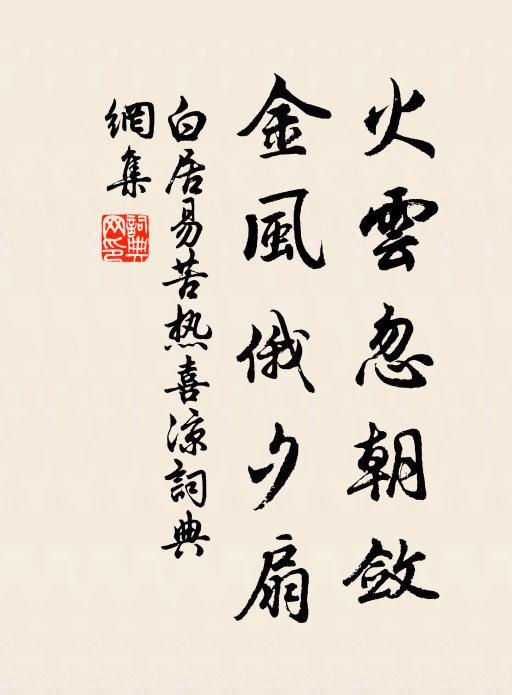 火雲忽朝斂
金風俄夕扇
白居易苦热喜凉詞典
網集
詞典
网印